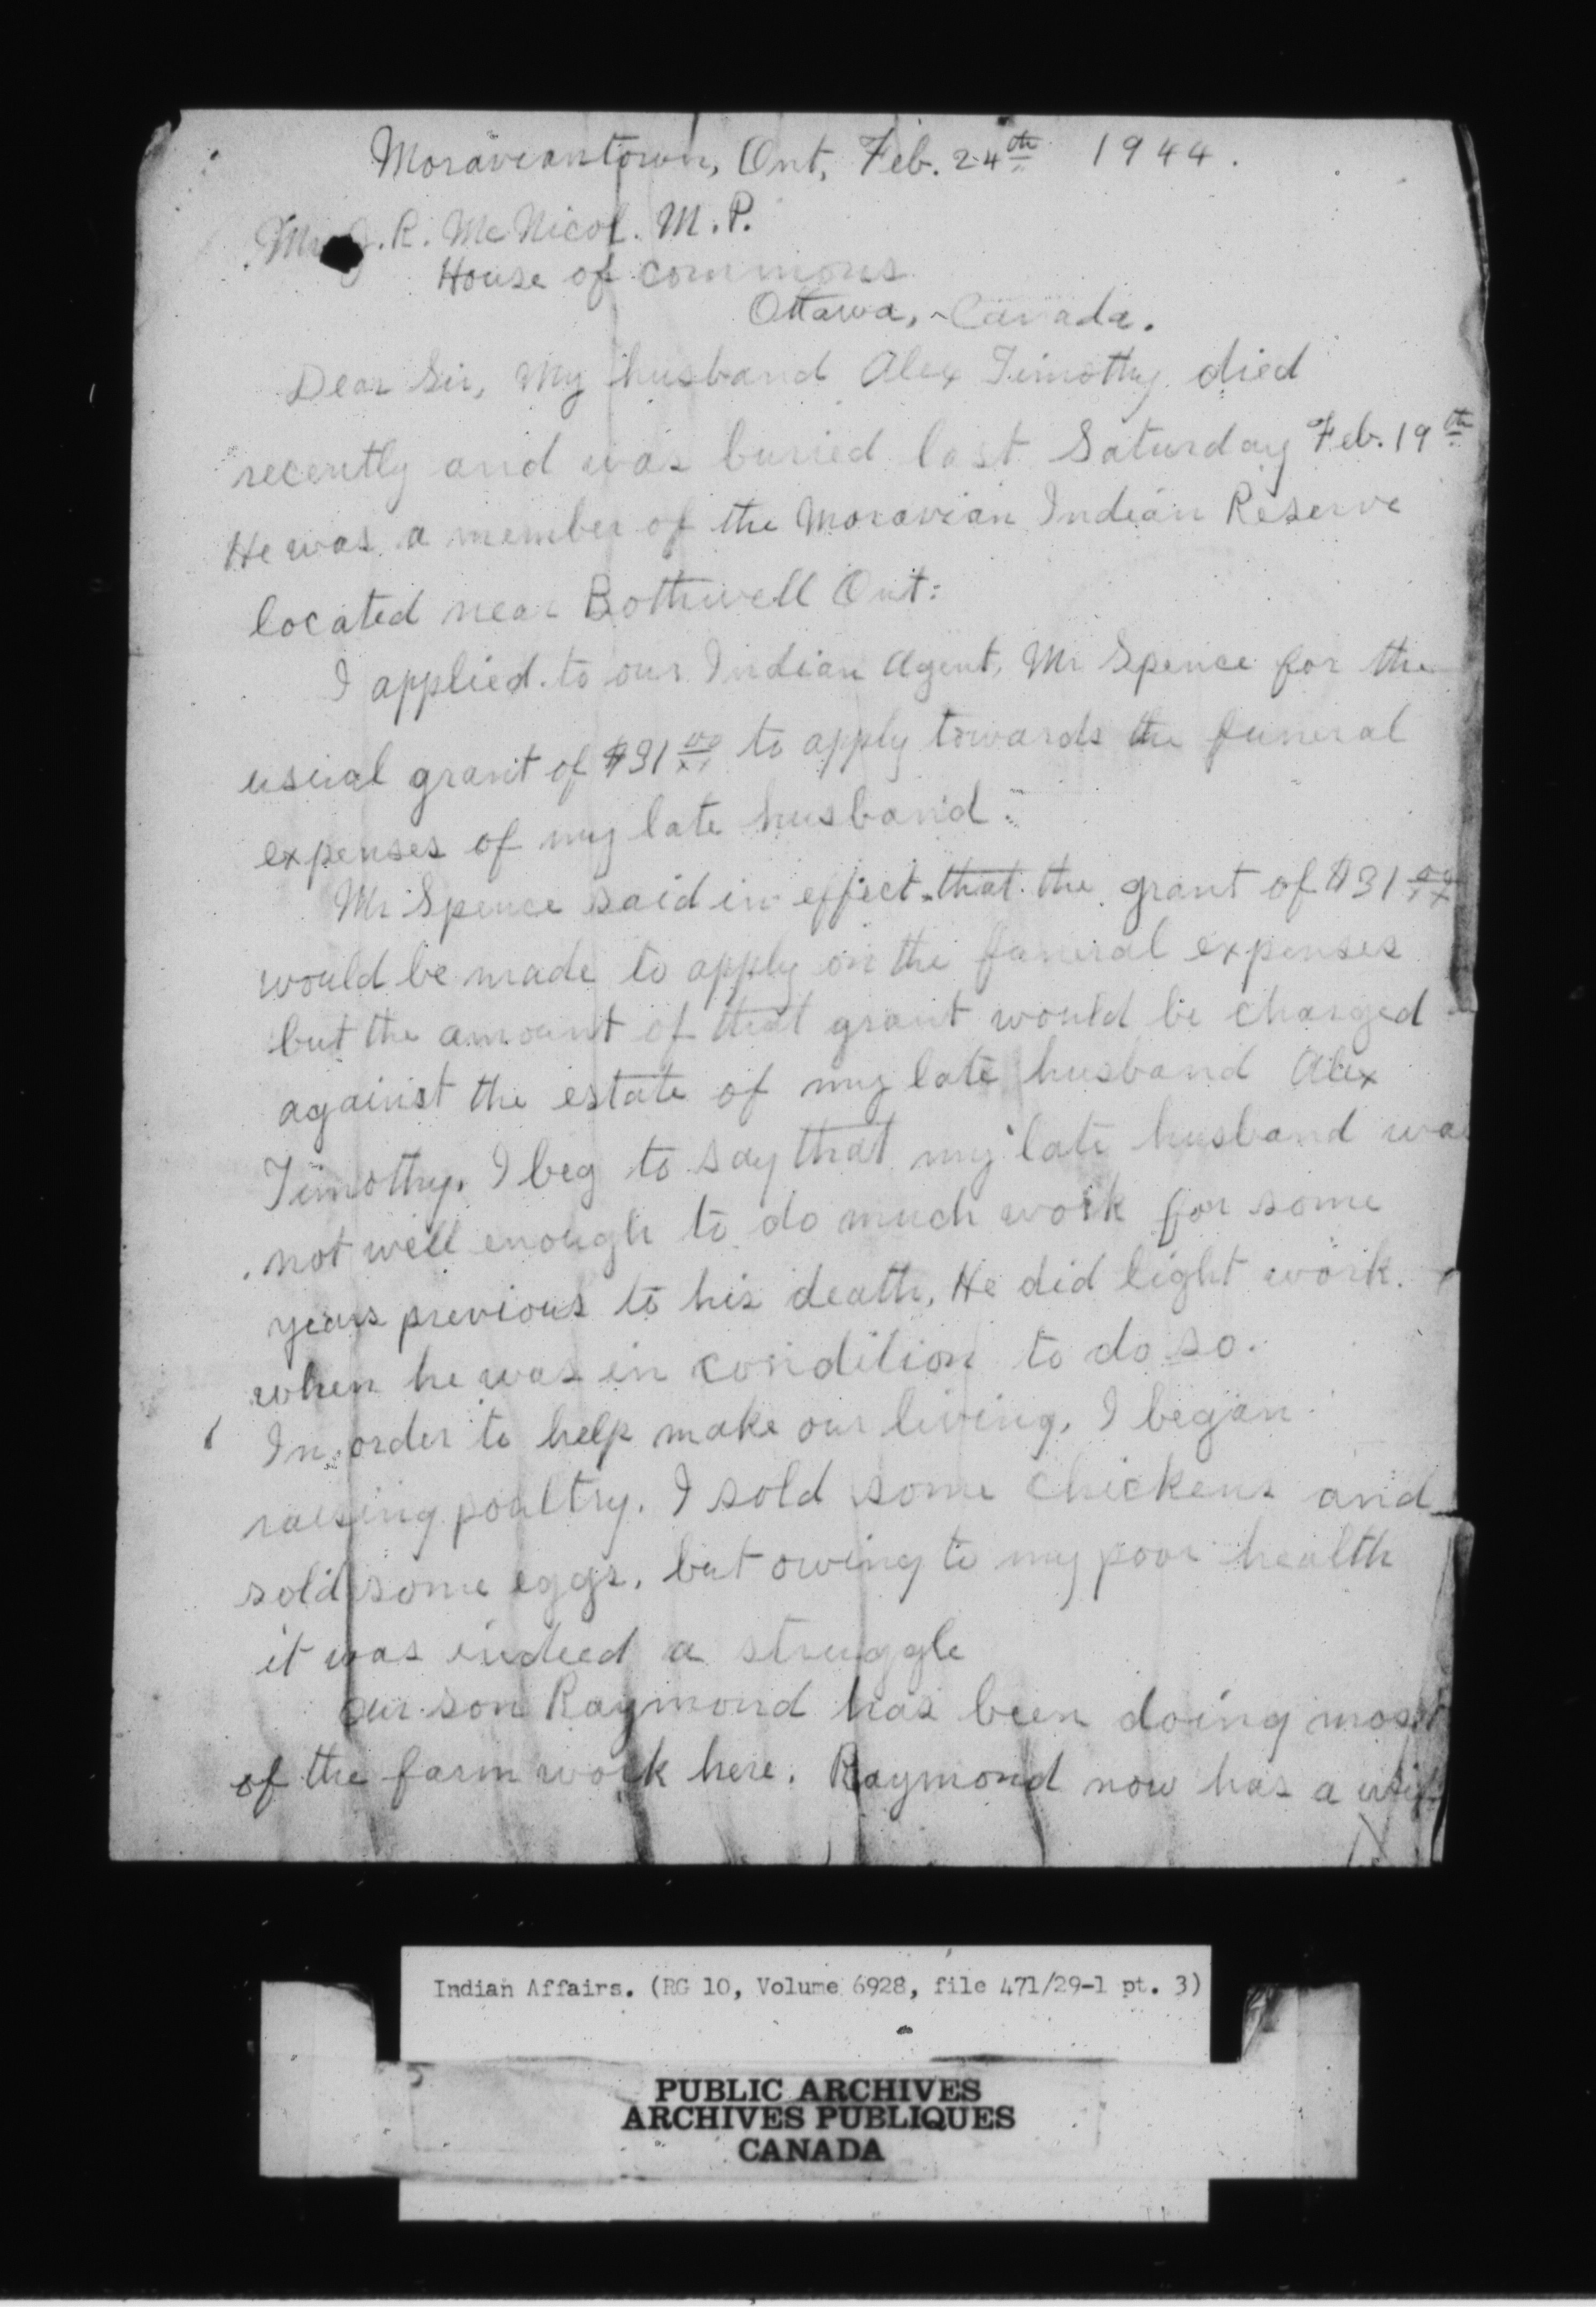 Moraviantown, Ont, Feb. 24th 1944.
Mr J. R. McNicol. M.P.
House of commons
Ottawa, Canada.
Dear Sir, My husband Alex Timothy died
recently and was buried last Saturday Feb. 19th
He was a member of the Moravian Indian Reserve
located near Bothwell Ont:
I applied to our Indian Agent, Mr Spence for the
usual grant of $31 00/xx to apply towards the funeral
expenses of my late husband.
Mr Spence said in effect that the grant of $31 00/xx
would be made to apply on the funeral expenses
but the amount of that grant would be charged
against the estate of my late husband Alex
Timothy. I beg to say that my late husband was
not well enough to do much work for some
years previous to his death, He did light work.
when he was in condition to do so.
In order to help make our living, I began
raising poultry. I sold some chickens and
sold some eggs, but owing to my poor health
it was indeed a struggle
Our son Raymond has been doing most
of the farm work here. Raymond now has a wife
Indian Affairs. (RG 10, Volume 6928, file 471/29-1 pt. 3)
PUBLIC ARCHIVES
ARCHIVES PUBLIQUES
CANADA